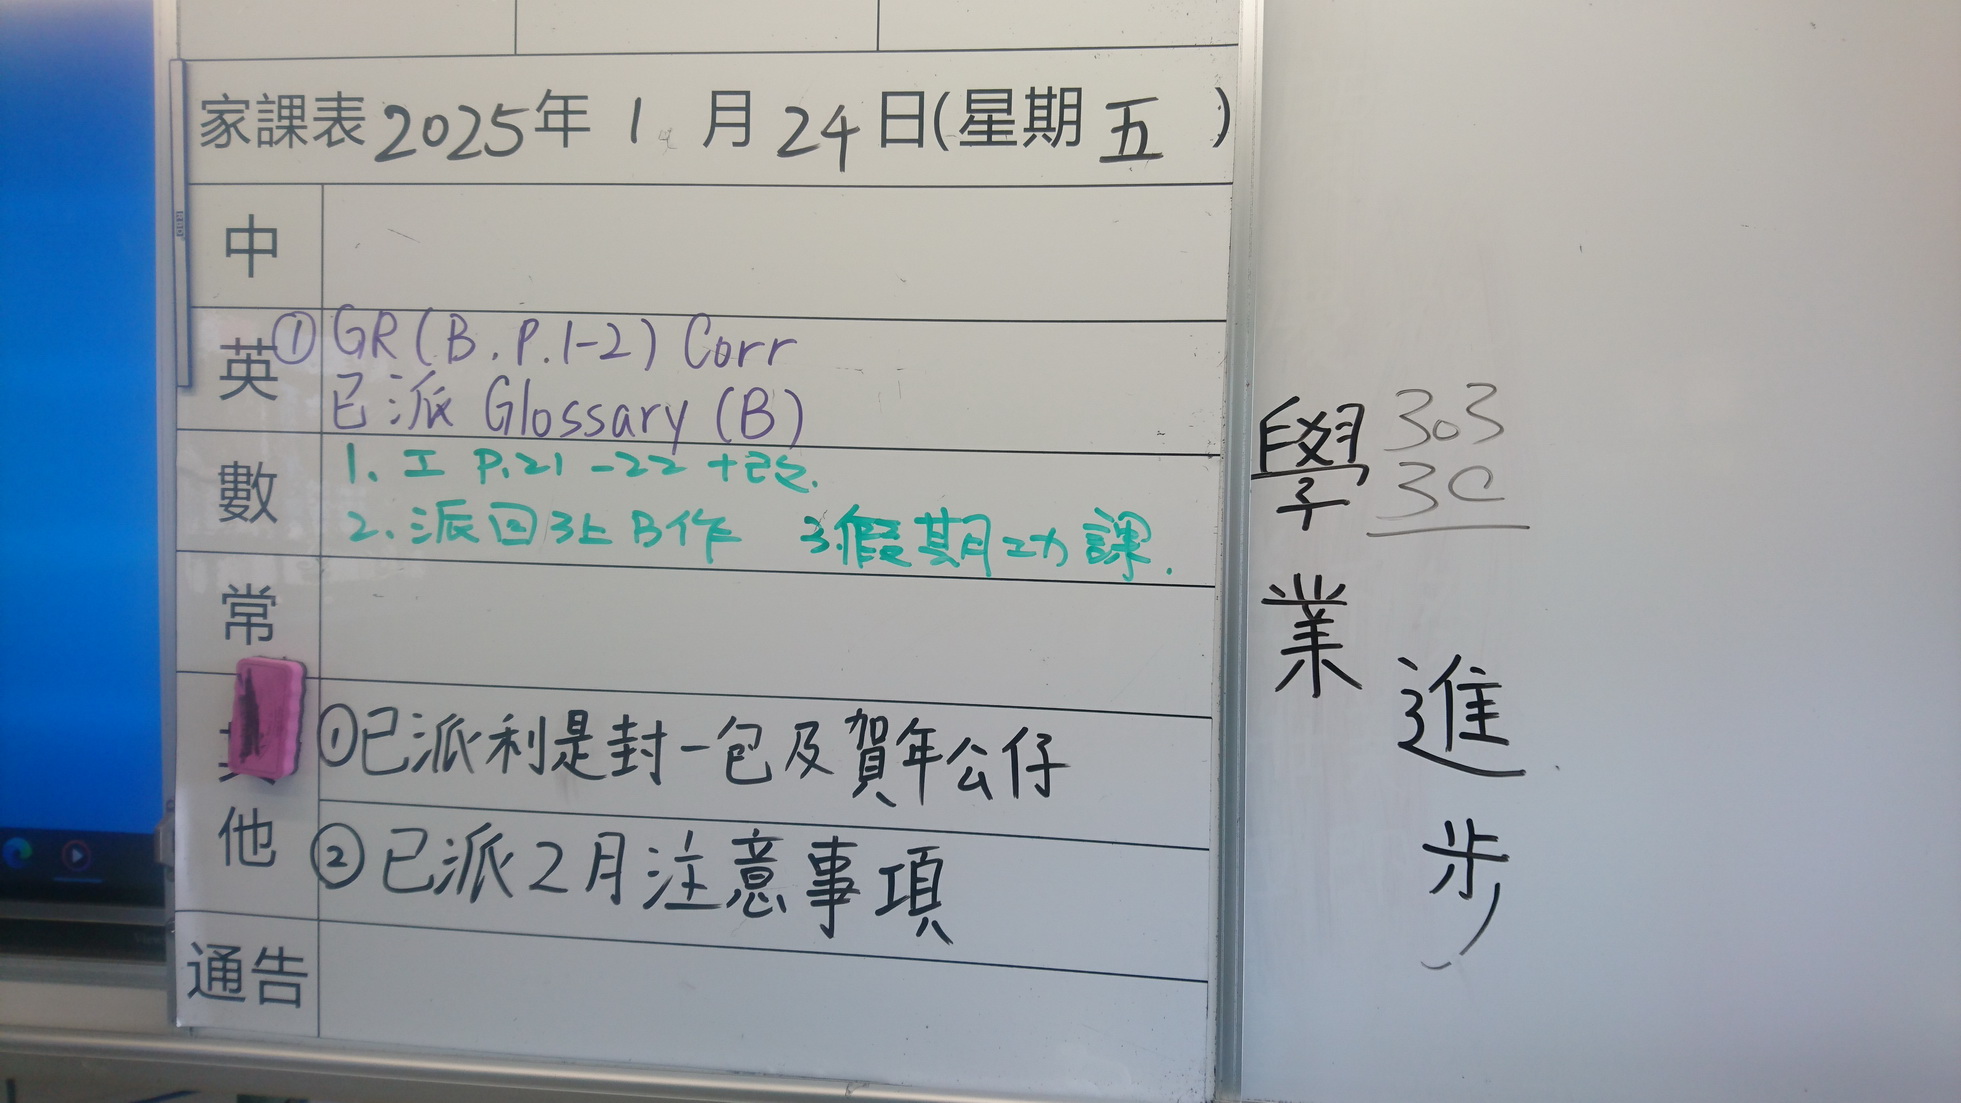 家課表 2025年 1 月 24 日(星期 五 )
中
英 ① GR (B. P.1-2) Corr
已派 Glossary (B)
數 1. 工 P.21 -22 +改.
2. 派回3上B作 3.假期功課.
常
其他 ①已派利是封一包及賀年公仔
②已派2月注意事項
通告
學業
進步
303
3C